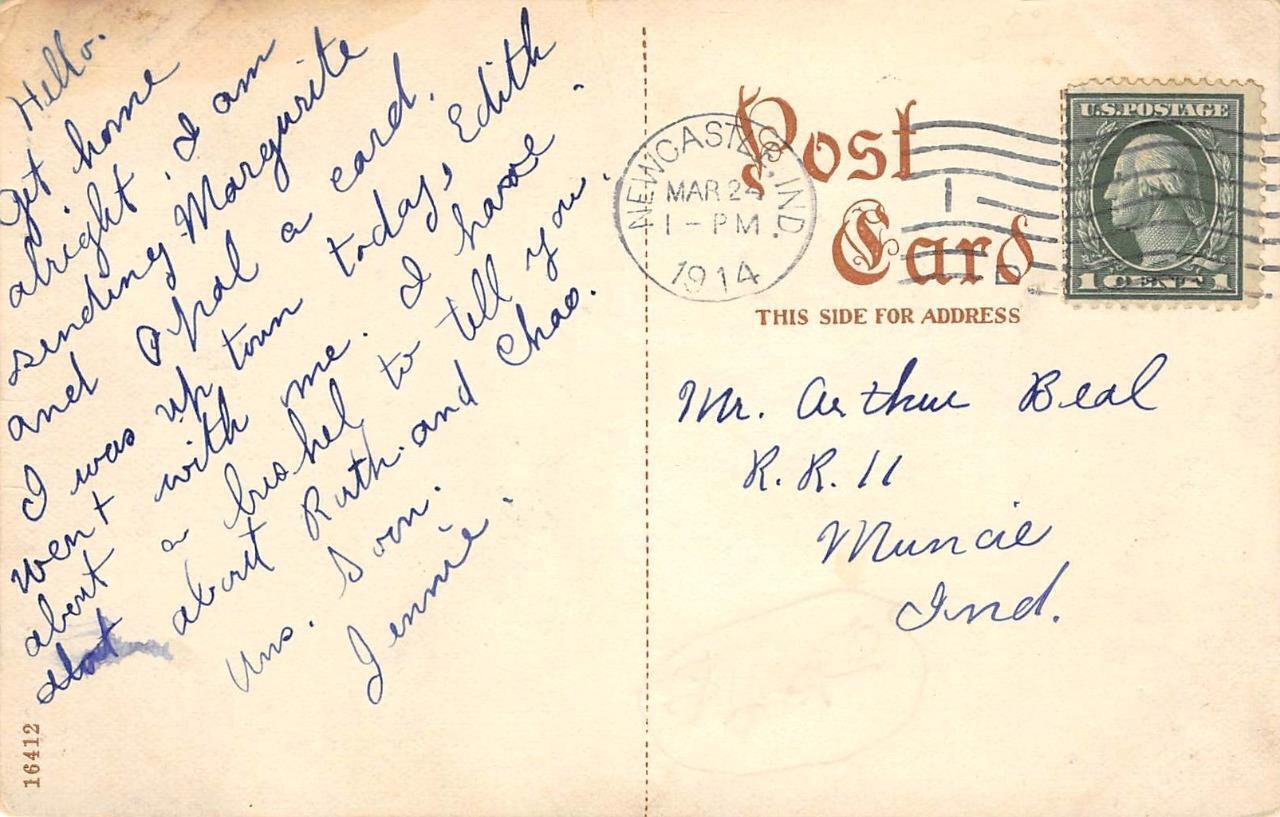 Hello.
Get home
alright. I am
sending Margurite
and Opal a card.
I was up town today, Edith
went with me. I have
about a bushel to tell you.
about Ruth and Chas.
Ans. Soon.
Jennie.
16412
Post
Card
THIS SIDE FOR ADDRESS
NEWCASTLE, IND.
MAR 24
1-PM
1914
1
U.S. POSTAGE
1 CENT 1
Mr. Arthur Beal
R. R. 11
Muncie
Ind.